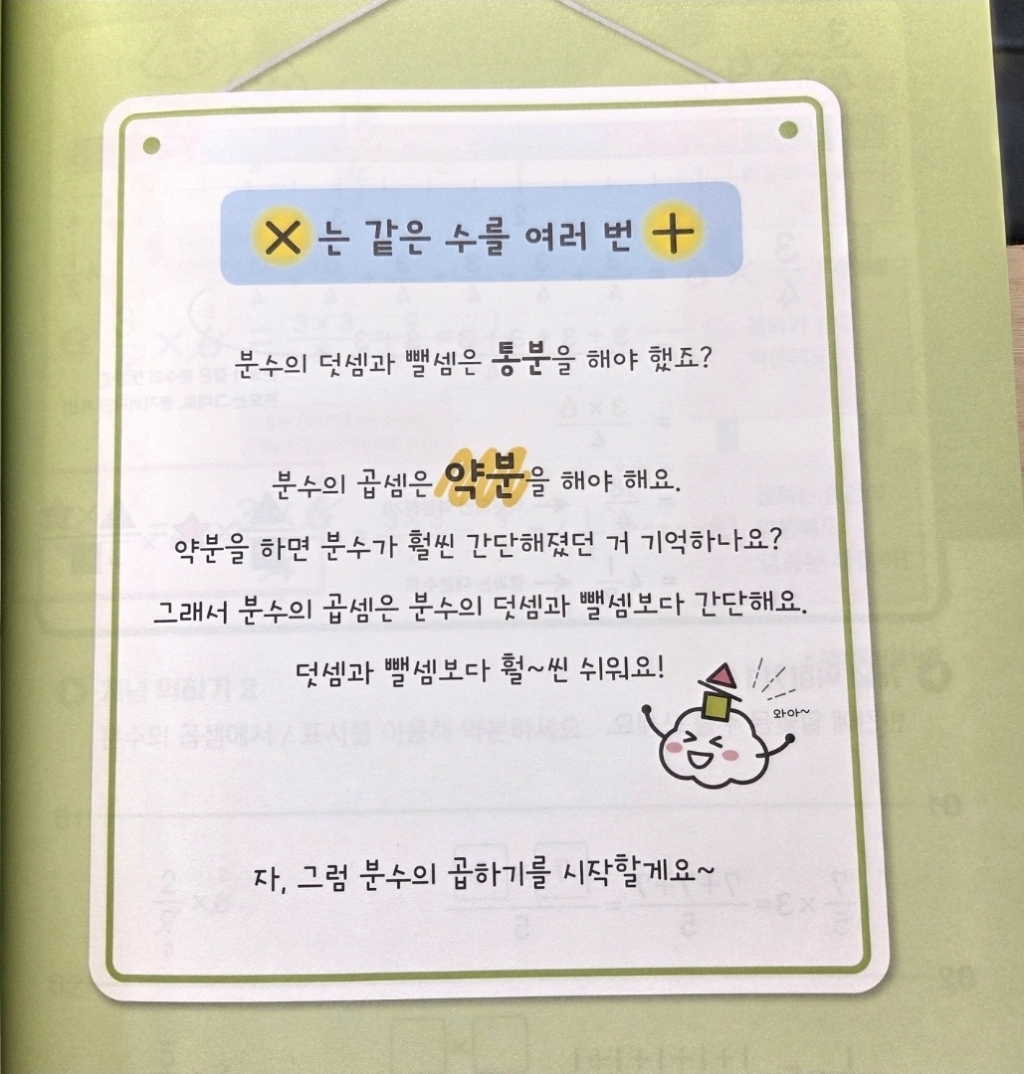 ×는 같은 수를 여러 번 +
분수의 덧셈과 뺄셈은 통분을 해야 했죠?
분수의 곱셈은 약분을 해야 해요.
약분을 하면 분수가 훨씬 간단해졌던 거 기억하나요?
그래서 분수의 곱셈은 분수의 덧셈과 뺄셈보다 간단해요.
덧셈과 뺄셈보다 훨~씬 쉬워요!
와아~
자, 그럼 분수의 곱하기를 시작할게요~